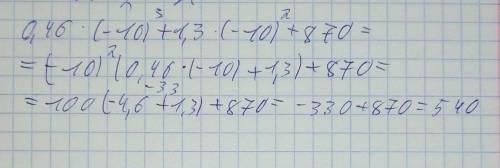 0,46 · (-10)³ + 1,3 · (-10)² + 870 =
= (-10)² (0,46 · (-10) + 1,3) + 870 =
-33
= 100 (-4,6 + 1,3) + 870 = -330 + 870 = 540